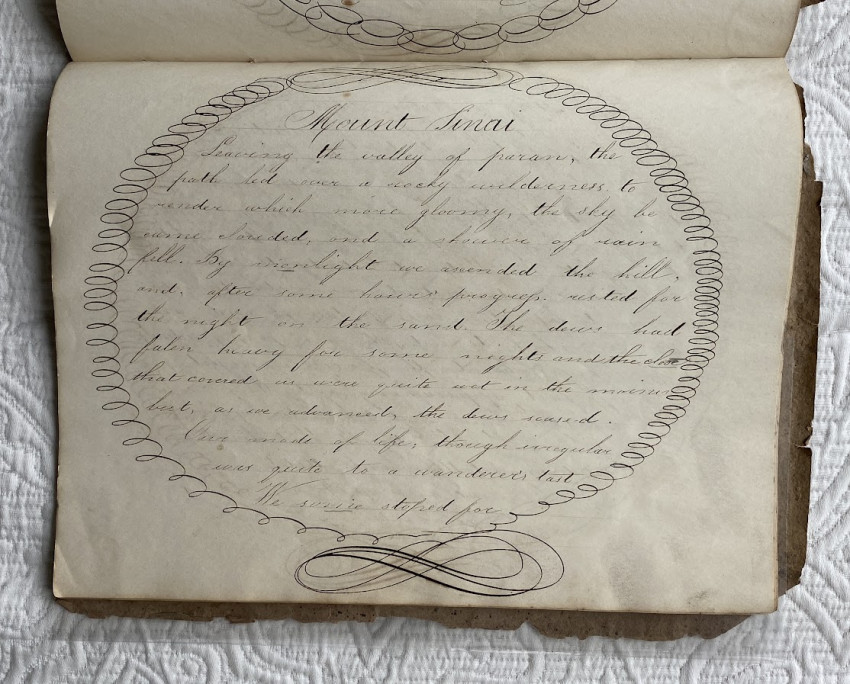 Mount Sinai
Leaving the valley of paran, the
path led over a rocky wilderness, to
render which more gloomy, the sky be
came clouded, and a shower of rain
fell. By moonlight we asended the hill,
and, after some hours progress rested for
the night on the sand. The dews had
falen heavy for some nights and the cloe
that covered us were quite wet in the morning
but, as we advanced, the dews seased.
Our mode of life, though irregular
was quite to a wanderer's tast
We stoped for